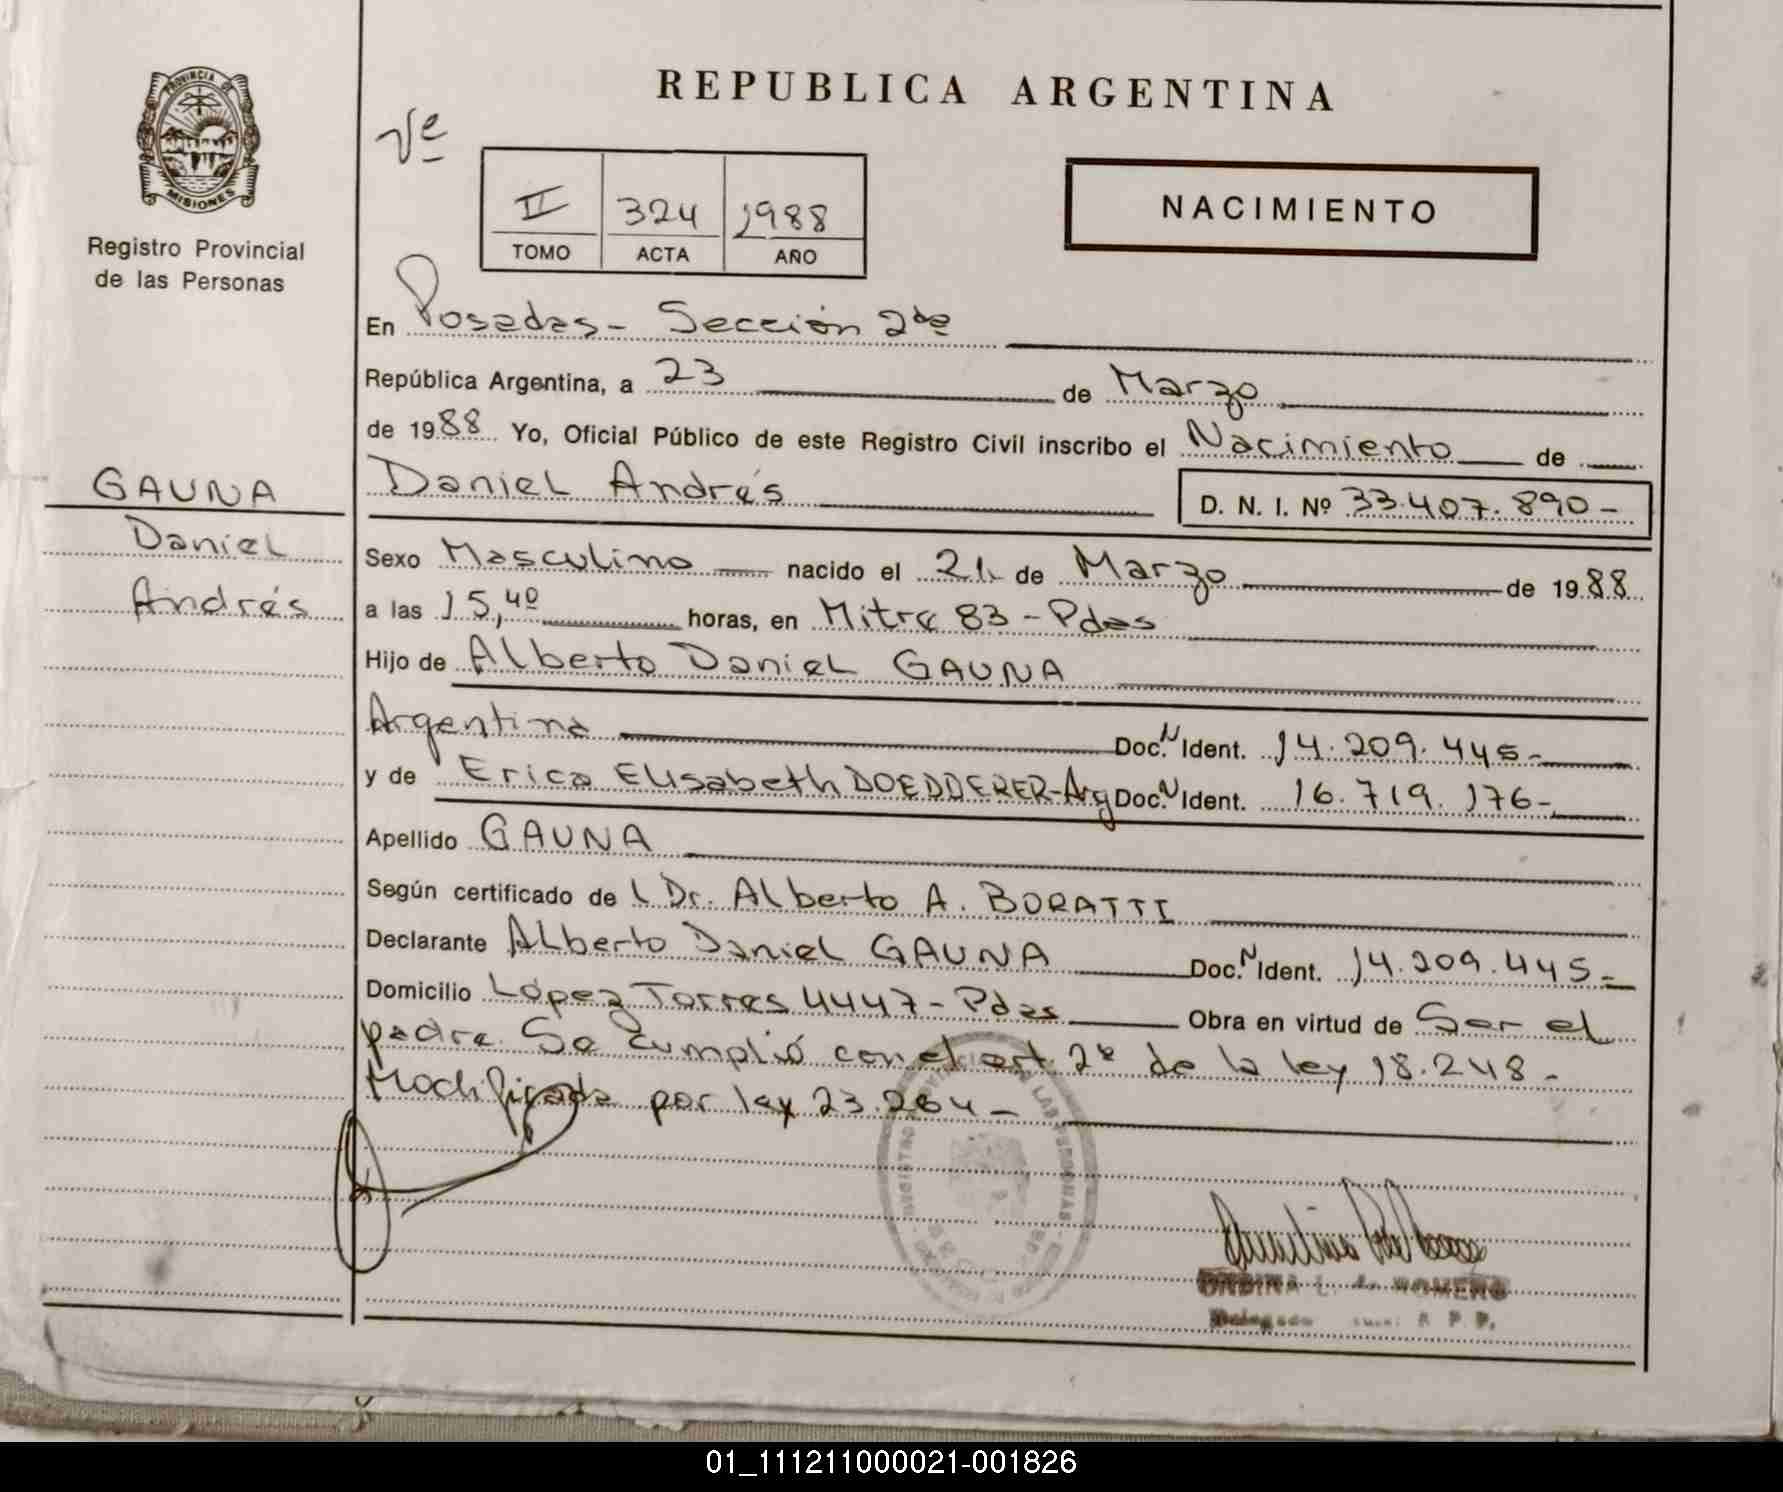 PROVINCIA DE
MISIONES
Registro Provincial
de las Personas
GAUNA
Daniel
Andrés
REPUBLICA ARGENTINA
Ve
II 324 1988
TOMO ACTA AÑO
NACIMIENTO
En Posadas - Sección 2da
República Argentina, a 23 de Marzo
de 1988 Yo, Oficial Público de este Registro Civil inscribo el Nacimiento de
Daniel Andrés D. N. I. Nº 33.407.890-
Sexo Masculino nacido el de Marzo de 1988
a las 15,40 horas, en Mitre 83 - Pdas
Hijo de Alberto Daniel GAUNA
Argentina Doc. N Ident. 14.209.445-
y de Erica Elisabeth DOEDDERER-Arg Doc. N Ident. 16.719.176-
Apellido GAUNA
Según certificado de l Dr. Alberto A. BORATTI
Declarante Alberto Daniel GAUNA Doc. N Ident. 14.209.445-
Domicilio López Torres 4447 - Pdas Obra en virtud de Ser el
padre. Se cumplió con el art. 2º de la ley 18.248-
Modificada por ley 23.264-
ROMERO
01_111211000021-001826